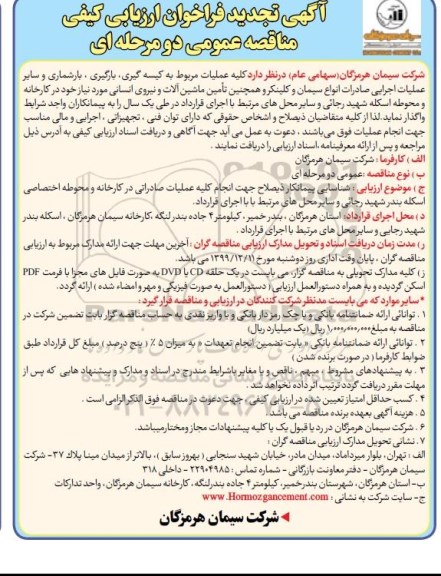 آگهی تجدید فراخوان ارزیابی کیفی
مناقصه عمومی دو مرحله ای
شرکت سیمان هرمزگان(سهامی عام) درنظر دارد کلیه عملیات مربوط به کیسه گیری، بارگیری ، بارشماری و سایر
عملیات اجرایی صادرات انواع سیمان و کلینکر و همچنین تأمین ماشین آلات و نیروی انسانی مورد نیاز خود در کارخانه
و محوطه اسکله شهید رجائی و سایر محل های مرتبط با اجرای قرارداد در طی یک سال را به پیمانکاران واجد شرایط
واگذار نماید.لذا از کلیه متقاضیان ذیصلاح و اشخاص حقوقی که دارای توان فنی ، تجهیزاتی ، اجرایی و مالی مناسب
جهت انجام عملیات فوق می‌باشند ، دعوت به عمل می آید جهت آگاهی و دریافت اسناد ارزیابی کیفی به آدرس ذیل
مراجعه و پس از ارائه معرفینامه ،اسناد ارزیابی را دریافت نمایند .
الف ) کارفرما : شرکت سیمان هرمزگان
ب ) نوع مناقصه :عمومی دو مرحله ای
ج ) موضوع ارزیابی : شناسایی پیمانکار ذیصلاح جهت انجام کلیه عملیات صادراتی در کارخانه و محوطه اختصاصی
اسکله بندر شهید رجائی و سایر محل های مرتبط با با اجرای قرارداد.
د ) محل اجرای قرارداد: استان هرمزگان ، بندر خمیر ، کیلومتر ۴ جاده بندر لنگه ،کارخانه سیمان هرمزگان ، اسکله بندر
شهید رجایی و سایر محل های مرتبط با اجرای قرارداد .
ر ) مدت زمان دریافت اسناد و تحویل مدارک ارزیابی مناقصه گران :آخرین مهلت جهت ارائه مدارک مربوط به ارزیابی
مناقصه گران ، پایان وقت اداری روز دوشنبه مورخ ۱۳۹۹/۱۲/۱۱ می باشد.
ز ) کلیه مدارک تحویلی به مناقصه گزار، می بایست در یک حلقه CD یا DVD به صورت فایل های مجزا با فرمت PDF
اسکن گردیده و به همراه دستورالعمل ارزیابی( دستورالعمل به صورت فیزیکی و مهر و امضاء شده ) ارائه گردد.
*سایر موارد که می بایست مدنظر شرکت کنندگان در ارزیابی و مناقصه قرار گیرد :
۱ . توانائی ارائه ضمانتنامه بانکی و یا چک رمز دار بانکی و یا واریز نقدی به حساب مناقصه گزار بابت تضمین شرکت در
مناقصه به مبلغ ۱,۰۰۰,۰۰۰,۰۰۰ ریال (یک میلیارد ریال)
۲ . توانائی ارائه ضمانتنامه بانکی « بابت تضمین انجام تعهدات » به میزان ۵ ٪ ( پنج درصد ) مبلغ کل قرارداد طبق
ضوابط کارفرما ( در صورت برنده شدن )
۳ . به پیشنهادهای مشروط ، مبهم ، ناقص و یا مغایر باشرایط مندرج در اسناد و مدارک و پیشنهاد هایی که پس از
مهلت مقرر دریافت گردد ترتیب اثر داده نخواهد شد .
۴ . کسب حداقل امتیاز تعیین شده در ارزیابی کیفی، جهت دعوت در مناقصه فوق الذکر الزامی است .
۵ . هزینه آگهی بعهده برنده مناقصه می باشد.
۶ . شرکت سیمان هرمزگان در رد یا قبول یک یا کلیه پیشنهادات مجاز ومختار میباشد.
۷ . نشانی تحویل مدارک ارزیابی مناقصه گران :
الف : تهران، بلوار میرداماد، میدان مادر، خیابان شهید سنجابی ( بهروز سابق )، بالاتر از میدان مینا پلاک ۳۷- شرکت
سیمان هرمزگان - دفتر معاونت بازرگانی - شماره تماس : ۲۲۹۰۴۹۸۵ - داخلی ۳۱۸
ب- استان هرمزگان، شهرستان بندرخمیر، کیلومتر ۴ جاده بندرلنگه، کارخانه سیمان هرمزگان، واحد تدارکات
ج- سایت شرکت به نشانی : www.Hormozgancement.com
شرکت سیمان هرمزگان